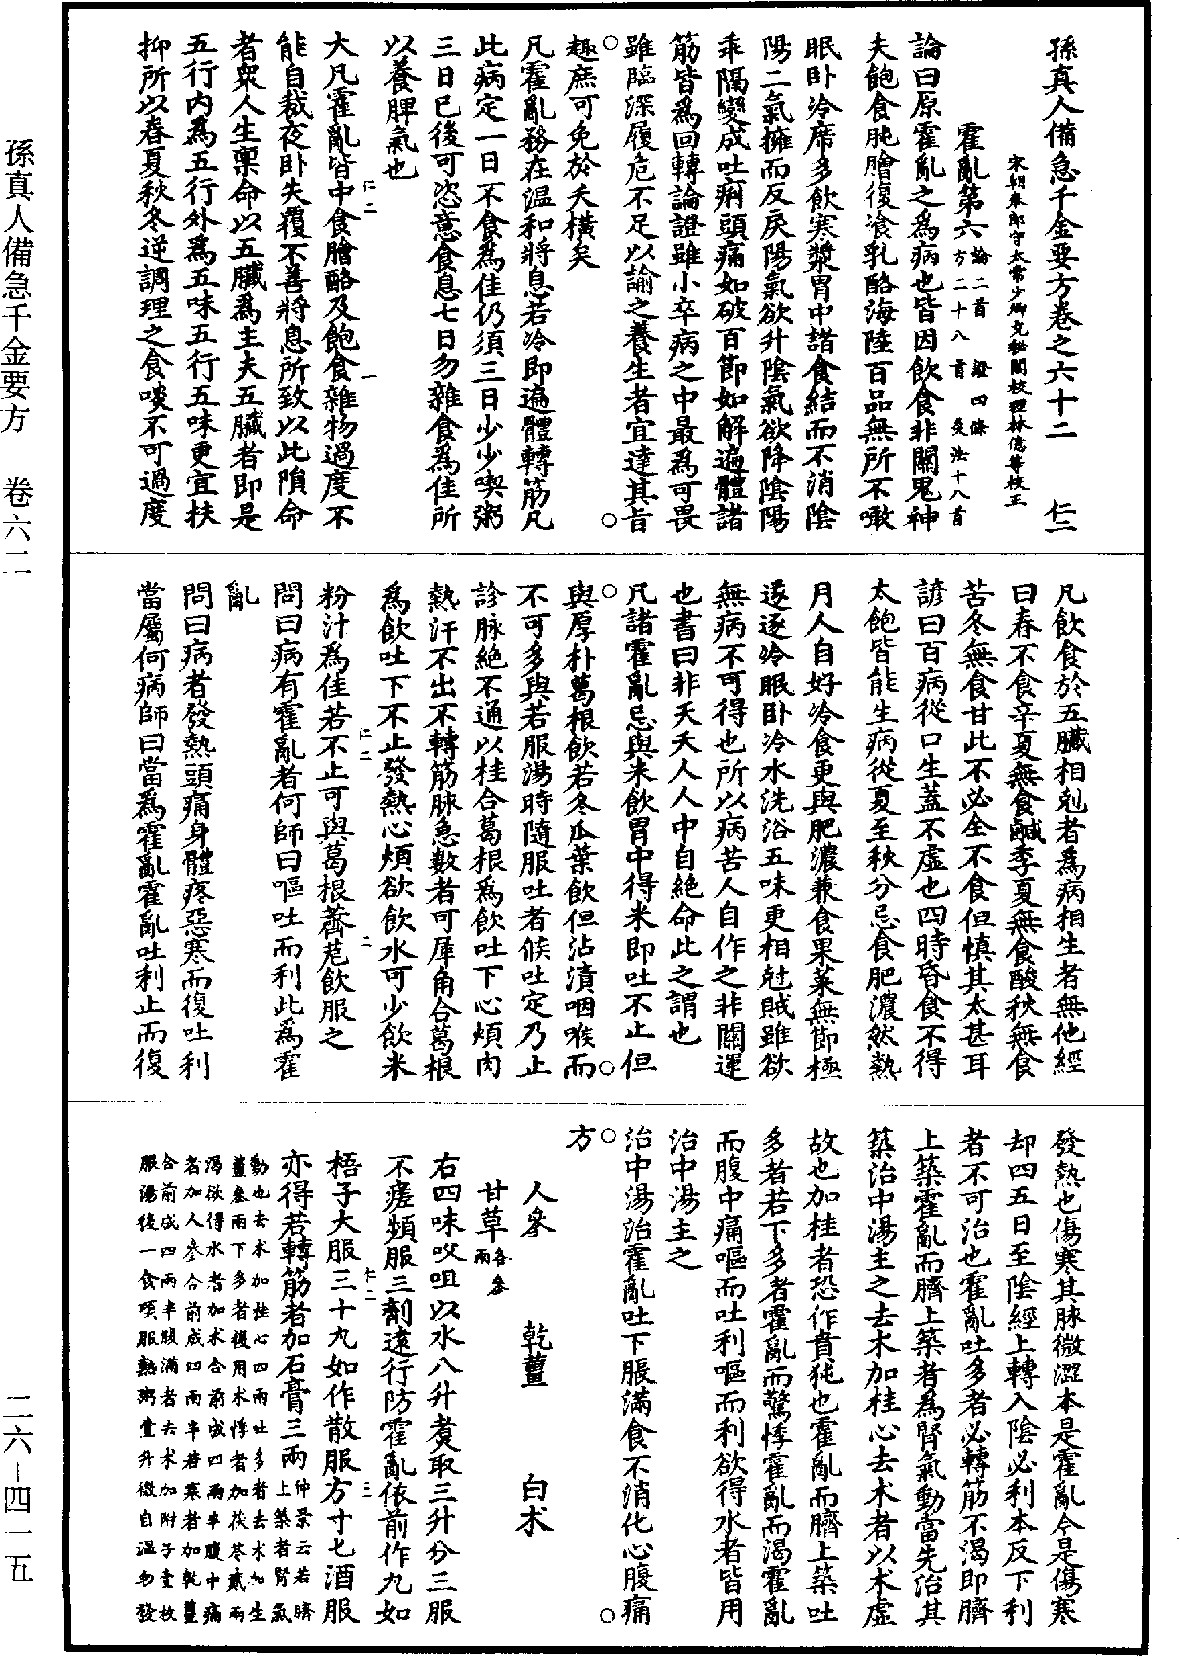 孫真人備急千金要方卷之六十二　　仁二
宋朝奉郎守太常少卿充秘閣校理林億等校正
霍亂第六 論二首　證四條 方二十八首　灸法十八首
論曰原霍亂之為病也皆因飲食非關鬼神
夫飽食肫膾復飡乳酪海陸百品無所不噉
眠卧冷席多飲寒漿胃中諸食結而不消陰
陽二氣擁而反戾陽氣欲升陰氣欲降陰陽
乖隔變成吐痢頭痛如破百節如解遍體諸
筋皆為回轉論證雖小卒病之中最為可畏
雖臨深履危不足以諭之養生者宜達其旨
趣庶可免於夭橫矣
凡霍亂務在温和將息若冷即遍體轉筋凡
此病定一日不食為佳仍須三日少少喫粥
三日已後可恣意食息七日勿雜食為佳所
以養脾氣也
仁二　　一
大凡霍亂皆中食膾酪及飽食雜物過度不
能自裁夜卧失覆不善將息所致以此隕命
者眾人生禀命以五臟為主夫五臟者即是
五行內為五行外為五味五行五味更宜扶
抑所以春夏秋冬逆調理之食啖不可過度
凡飲食於五臟相剋者為病相生者無他經
曰春不食辛夏無食鹹季夏無食酸秋無食
苦冬無食甘此不必全不食但慎其太甚耳
諺曰百病從口生蓋不虛也四時昏食不得
太飽皆能生病從夏至秋分忌食肥濃然熱
月人自好冷食更與肥濃兼食果菜無節極
遂逐冷眠卧冷水洗浴五味更相尅賊雖欲
無病不可得也所以病苦人自作之非關運
也書曰非夭夭人人中自絕命此之謂也
凡諸霍亂忌與米飲胃中得米即吐不止但
與厚朴葛根飲若冬瓜葉飲但沾漬咽喉而
不可多與若服湯時隨服吐者候吐定乃止
診脉絕不通以桂合葛根為飲吐下心煩內
熱汗不出不轉筋脉急數者可犀角合葛根
為飲吐下不止發熱心煩欲飲水可少飲米
仁二　　二
粉汁為佳若不止可與葛根薺苨飲服之
問曰病有霍亂者何師曰嘔吐而利此為霍
亂
問曰病者發熱頭痛身體疼惡寒而復吐利
當屬何病師曰當為霍亂霍亂吐利止而復
發熱也傷寒其脉微澀本是霍亂今是傷寒
却四五日至陰經上轉入陰必利本反下利
者不可治也霍亂吐多者必轉筋不渴即臍
上築霍亂而臍上築者為腎氣動當先治其
築治中湯主之去朮加桂心去朮者以朮虛
故也加桂者恐作賁㹠也霍亂而臍上築吐
多者若下多者霍亂而驚悸霍亂而渴霍亂
而腹中痛嘔而吐利嘔而利欲得水者皆用
治中湯主之
治中湯治霍亂吐下脹滿食不消化心腹痛
方
人參　　乾薑　　白朮
甘草各參兩
右四味㕮咀以水八升煑取三升分三服
不瘥頻服三劑遠行防霍亂依前作丸如
仁二　　三
梧子大服三十丸如作散服方寸匕酒服
亦得若轉筋者加石膏三兩仲景云若臍上築者腎氣
動也去朮加桂心四兩吐多者去朮加生
薑參兩下多者復用朮悸者加茯苓貳兩
渴欲得水者加朮合前成四兩半腹中痛
者加人參合前成四兩半若寒者加乾薑
合前成四兩半腹滿者去朮加附子壹枚
服湯後一食頃服熱粥壹升微自温勿發
孫真人備急千金要方　卷六二
二六－四一五